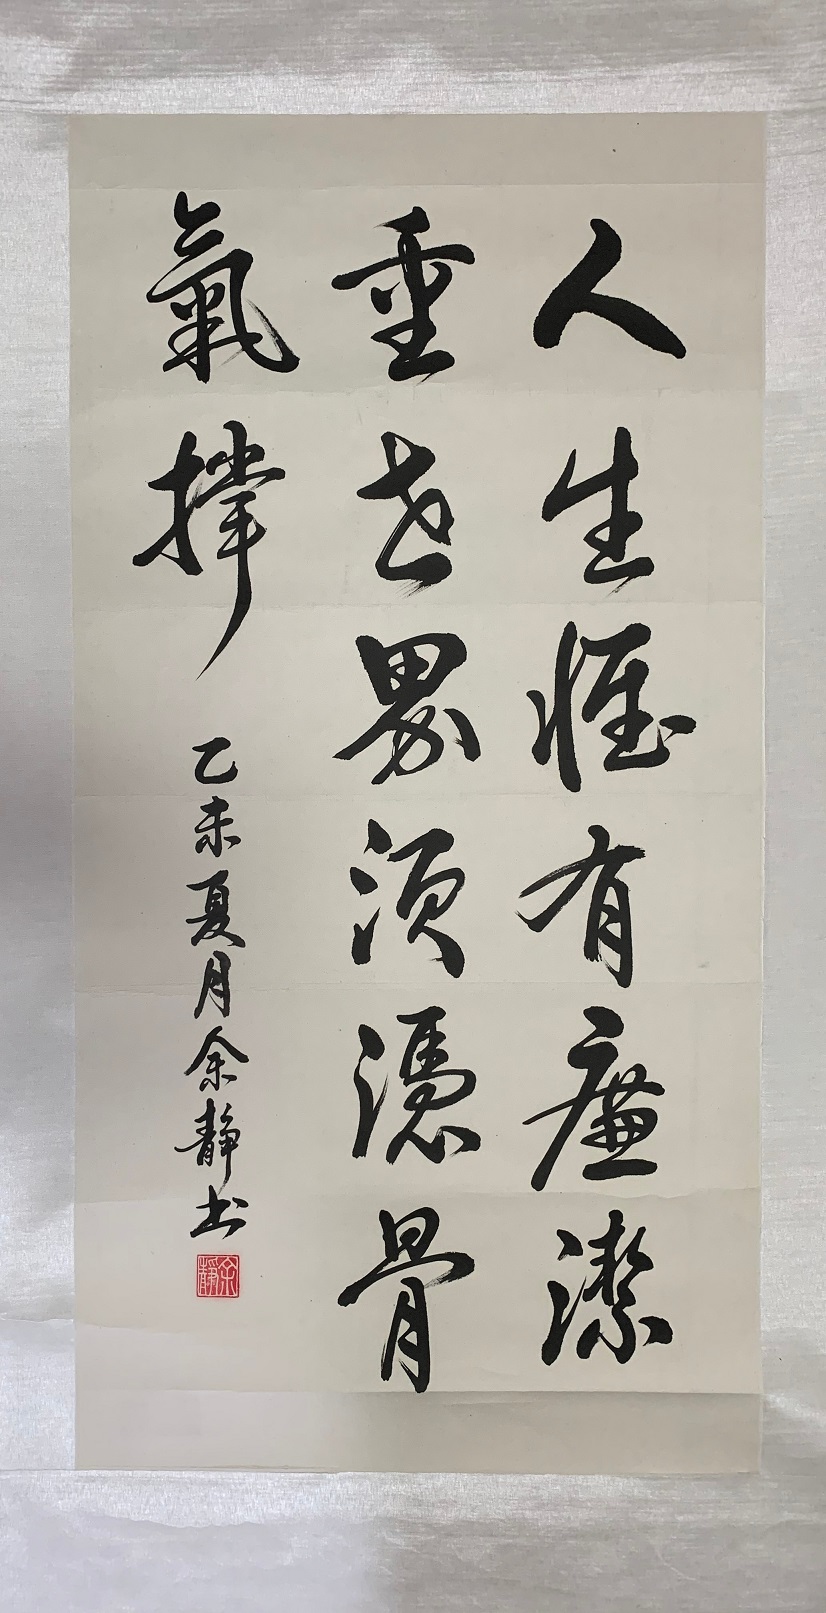 人生惟有廉潔
重世界須憑骨
氣撑
乙未夏月余靜书
余靜